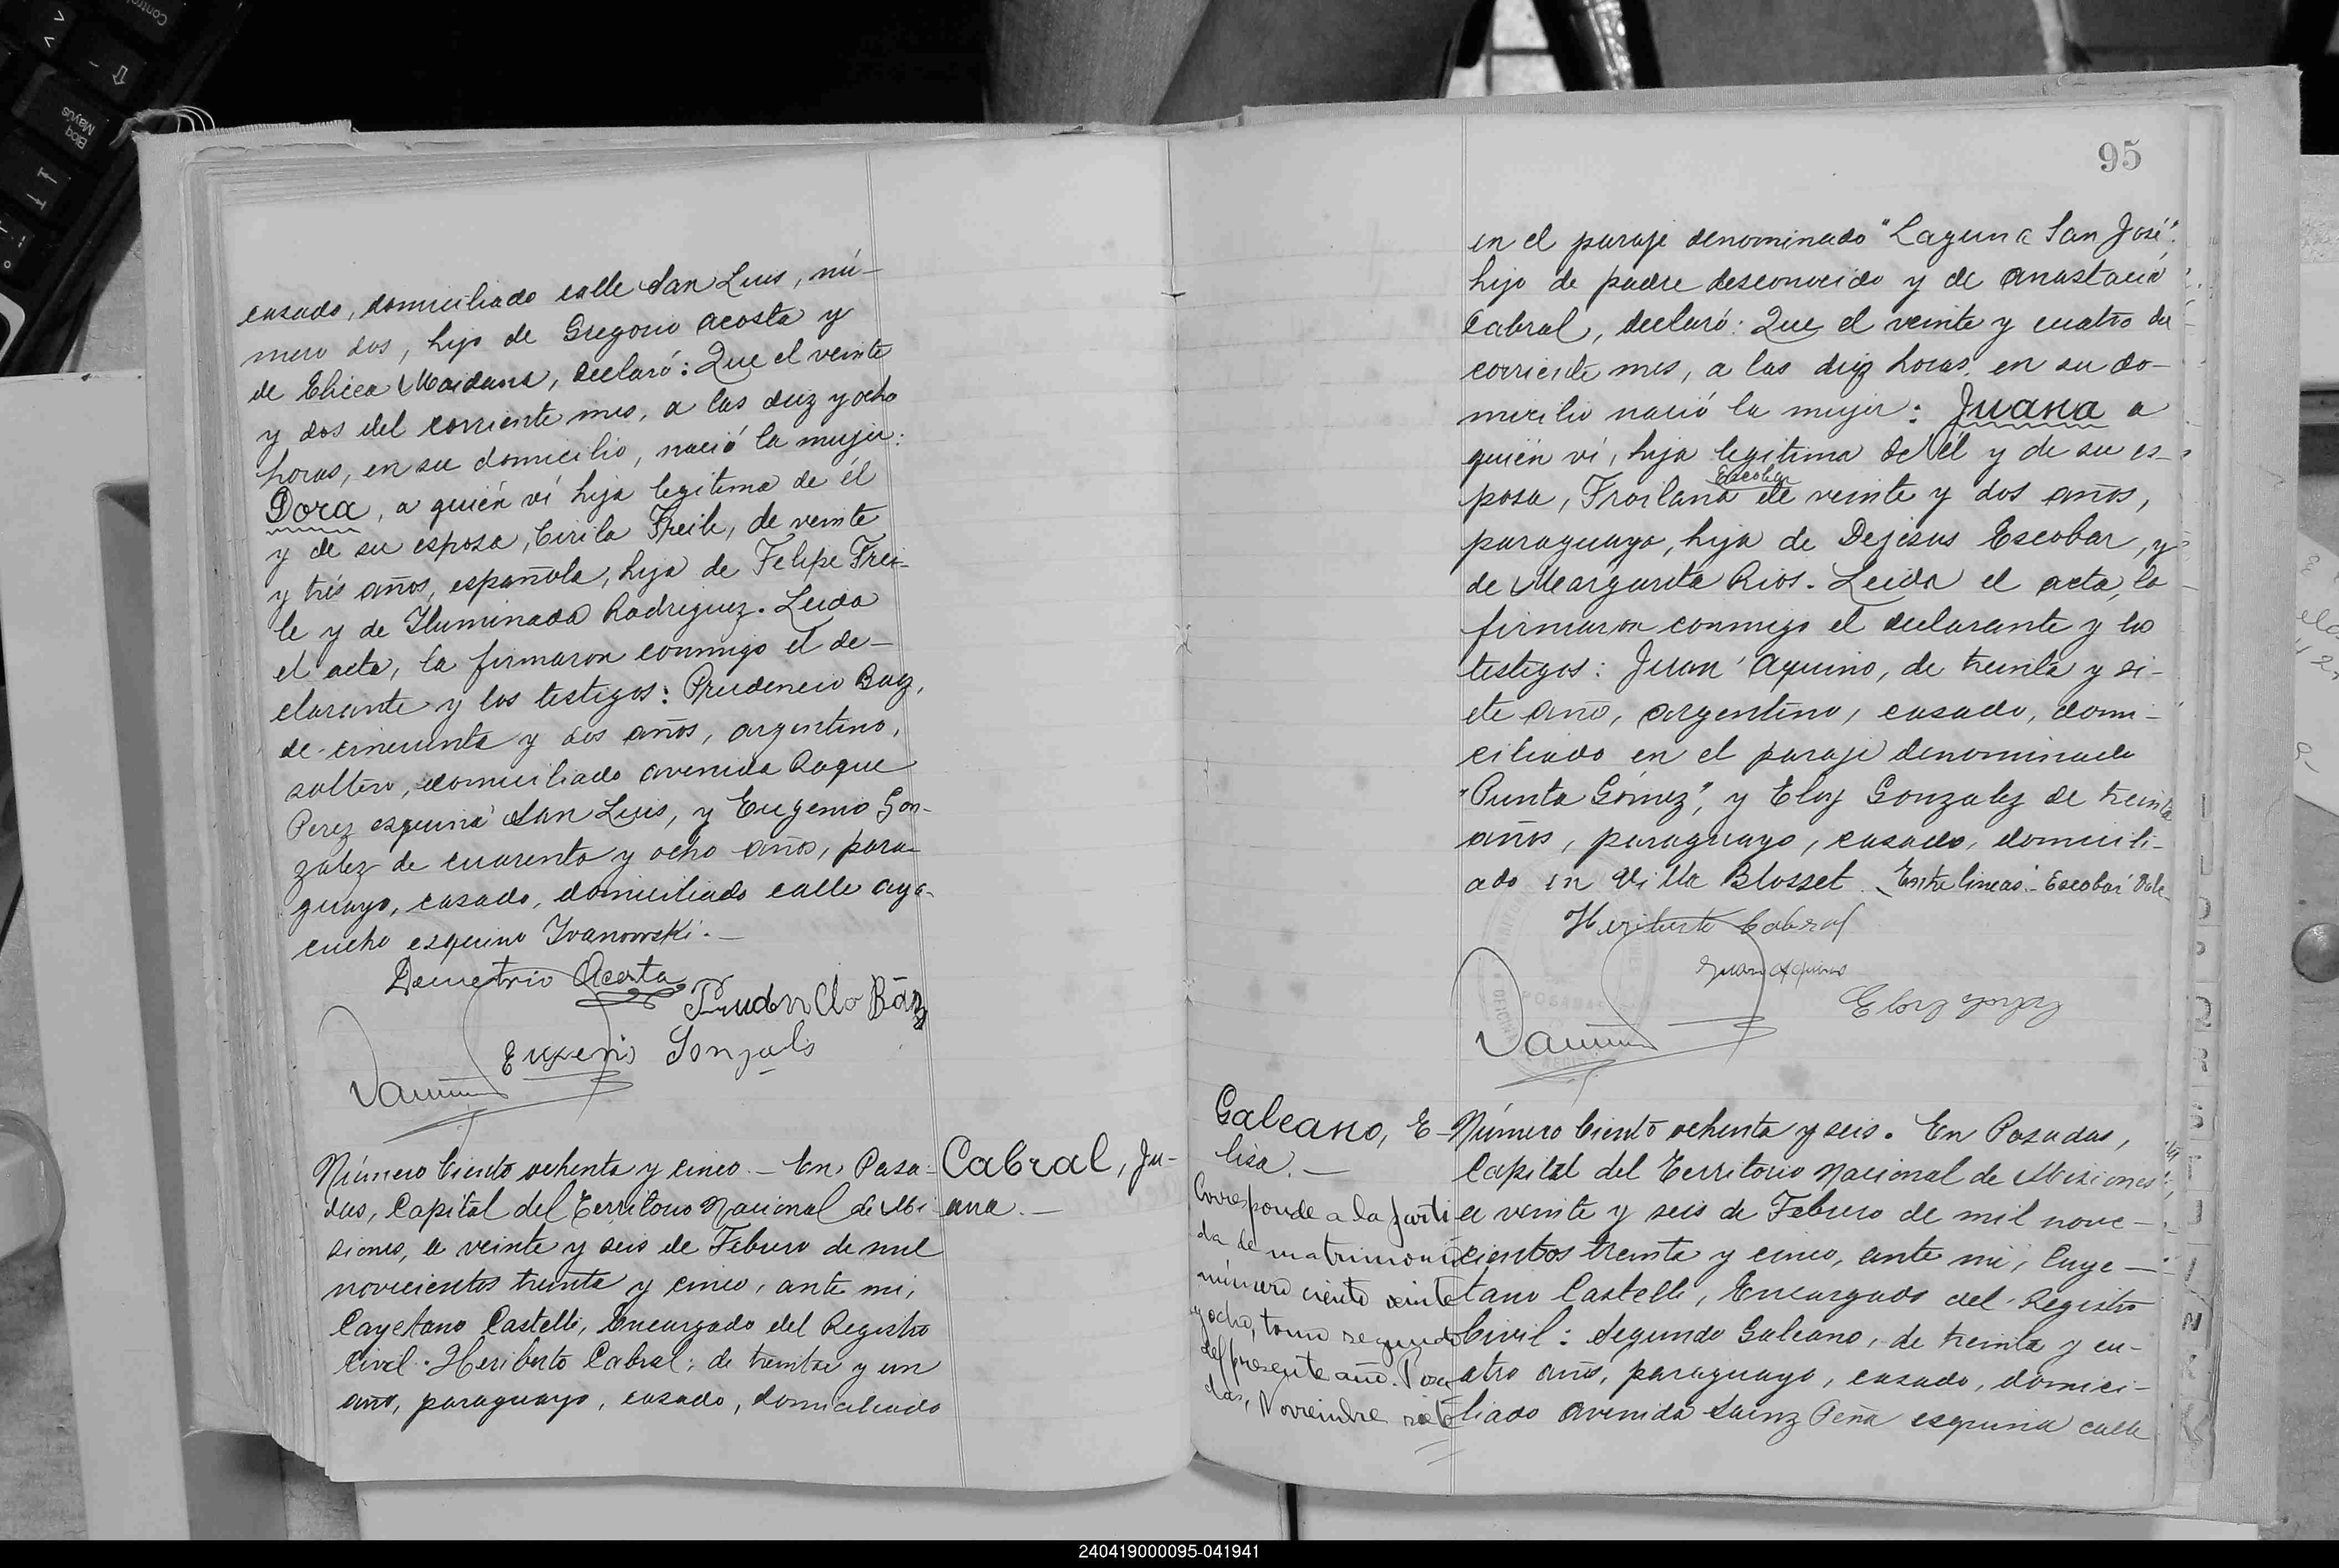 casado, domiciliado calle San Luis, nú-
mero dos, hijo de Gregorio Acosta y
de Maidana, declaró: Que el veinte
y dos del corriente mes, a las diez y ocho
horas, en su domicilio, nació la mujer:
Dora, a quién ví hija legitima de él
y de su esposa, Cirila Freile, de veinte
y trés años, española, hija de Felipe Frei-
le y de Iluminada Rodriguez. Leida
el acta, la firmaron conmigo el de-
clarante y los testigos: Prudencio Baez,
de cincuenta y dos años, argentino,
soltero, domiciliado avenida Roque
Perez esquina San Luis, y Eugenio Gon-
zalez de cuarenta y ocho años, para-
guayo, casado, domiciliado calle Aya-
cucho esquina Ivanowski.-
Demetrio Acosta
Prudencio Báez
Eugenio Gonzales
Número Ciento ochenta y cinco.- En Posa-
das, Capital del Territorio Nacional de Mi-
siones, a veinte y seis de Febrero de mil
novecientos treinta y cinco, ante mi,
Cayetano Castelli, Encargado del Registro
Civil. Heriberto Cabral; de treinta y un
año, paraguayo, casado, domiciliado
Cabral, Ju-
ana.-
95
en el paraje denominado "Laguna San José".
hijo de padre desconocido y de Anastacia
Cabral, declaró: Que el veinte y cuatro del
corriente mes, a las diez horas, en su do-
micilio nació la mujer: Juana a
quién ví, hija legitima de él y de su es-
Escobar
posa, Froilana de veinte y dos años,
paraguaya, hija de Dejesus Escobar, y
de Margarita Rios. Leida el acta, la
firmaron conmigo el declarante y los
testigos: Juan Aquino, de treinta y si-
ete año, argentino, casado, domi-
ciliado en el paraje denominado
"Punta Gómez", y Eloy Gonzalez de treinta
años, paraguayo, casado, domicili-
ado en Villa Blosset. Entre lineas.- Escobar Vale
Heriberto Cabral
Juan Aquino
Eloy
Galeano, E-
lisa.-
Corresponde a la parti
da de matrimonio
número ciento veinte
y ocho, tomo segundo
del presente año. Posa
das, Noviembre siete
Número Ciento ochenta y seis. En Posadas,
Capital del Territorio Nacional de Misiones,
a veinte y seis de Febrero de mil nove-
cientos treinta y cinco, ante mi, Caye-
tano Castelli, Encargado del Registro
Civil: Segundo Galeano, de treinta y cu-
atro años, paraguayo, casado, domici-
liado Avenida Sainz Peña esquina calle
240419000095-041941